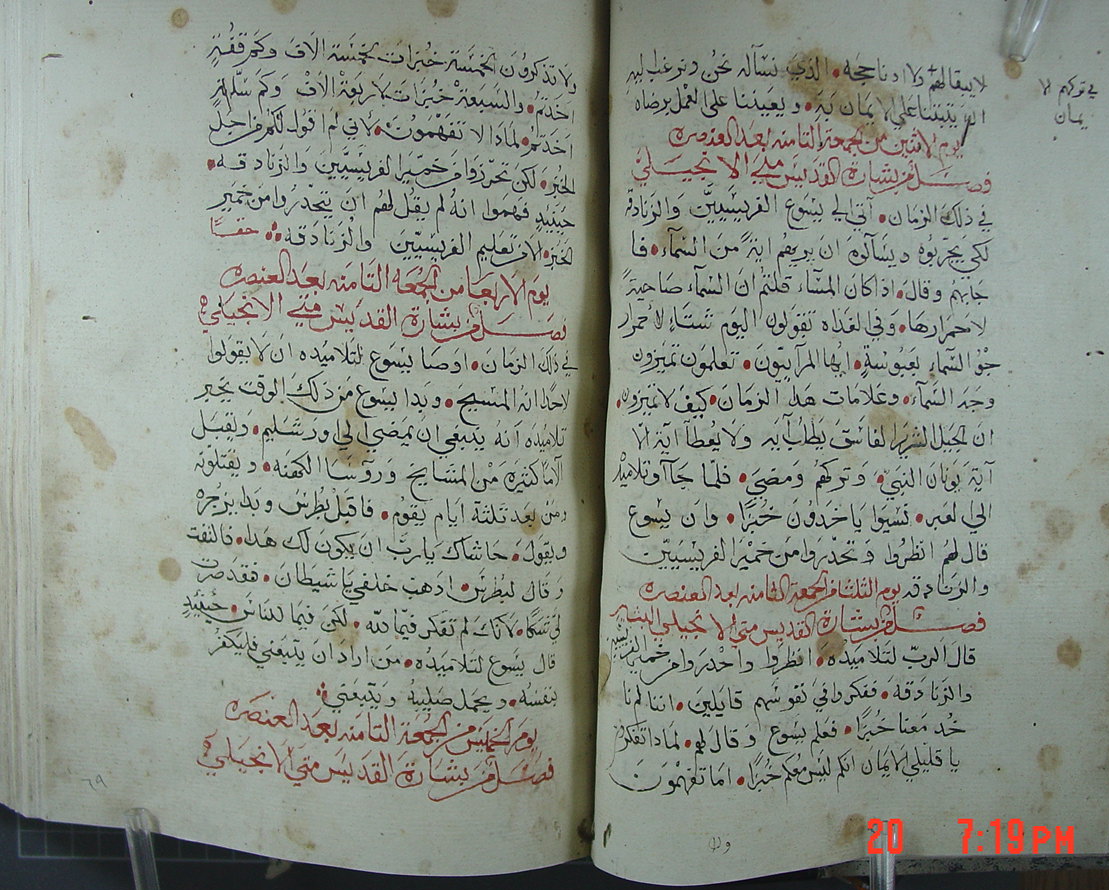 لايبقالهم ولا ادنا حجه • الذي نسآله نحن ونرغب اليه
في تركهم لا
يمان
ان يتبتنا على الايمان به • ويعيننا على العمل برضاه
يوم الاثنين من الجمعة الثامنه بعد العنصره
فصل من بشارة القديس متي الانجيلي
في ذلك الزمان • آتي الي يسوع الفريسيين والزنادقة
لكي يجربوه ويسآلوه ان يريهم اية من السمآء • فا
جابهم وقال • اذا كان المسآء قلتم ان السمآء صاحية
لاحمرارها • وفي الغداه تقولون اليوم شتاء لاحمرار
جو السمآء بعبوسة • ايها المرآييون • تعلمون تميزون
وجه السمآء • وعلامات هدا الزمان • كيف لا تميزون •
ان الجيل الشرير الفاسق يطلب آيه ولا يعطا آية الا
آية يونان النبي • وتركهم ومضي • فلما جاآ وتلاميذه
الي العبر • نسيوا ياخدون خبزا • وان يسوع
قال لهم انظروا وتحدروا من خمير الفريسيين
والزنادقه يوم الثلثا من الجمعة الثامنه بعد العنصره
فصل من بشارة القديس متي الانجيلي البشير
قال الرب لتلاميذه • انظروا واحدروا من خمير الفريسيين
والزنادقة • ففكروا في نفوسهم قايلين • اننا لم نا
خد معنا خبزا • فعلم يسوع وقال لهم • لمادا تفكرون
يا قليلي الايمان انكم ليس معكم خبزا • اما تفهمون
ولا تذكرون الخمسة خبزات لخمسة الاف وكم قفة
اخدتم • والسبعة خبزات لاربعة الاف وكم سلة
اخدتم • لمادا لا تفهمون • لاني لم اقول لكم من اجل
الخبز • لكن تحرزوا من خمير الفريسيين والزنادقه •
حينيد فهموا انه لم يقل لهم ان يتحدروا من خمير
الخبز • لا من تعليم الفريسيين والزنادقه • حقا
يوم الاربعا من الجمعه الثامنه بعد العنصره
فصل من بشارة القديس متي الانجيلي
في ذلك الزمان • اوصا يسوع لتلاميده ان لا يقولوا
لاحد انه المسيح • وبدا يسوع من ذلك الوقت يخبر
تلاميده انه ينبغي ان يمضي الي اورشليم • ويقبل
آلاما كثيره من المشايخ وروسا الكهنه • ويقتلونه
ومن بعد تلتة ايام يقوم • فاقبل بطرس وبدا يزجره
ويقول • حاشاك يارب ان يكون لك هدا • فالتفت
وقال لبطرس • ادهب خلفي يا شيطان • فقد صرت
لي شكا • لانك لم تفكر فيما لله • لكن فيما للناس • حينيد
قال يسوع لتلاميده • من اراد ان يتبعني فليكفر
بنفسه • ويحمل صليبه ويتبعني
يوم الخميس من الجمعة الثامنه بعد العنصره
فصل من بشارة القديس متي الانجيلي
٦٩
20 7:19 PM